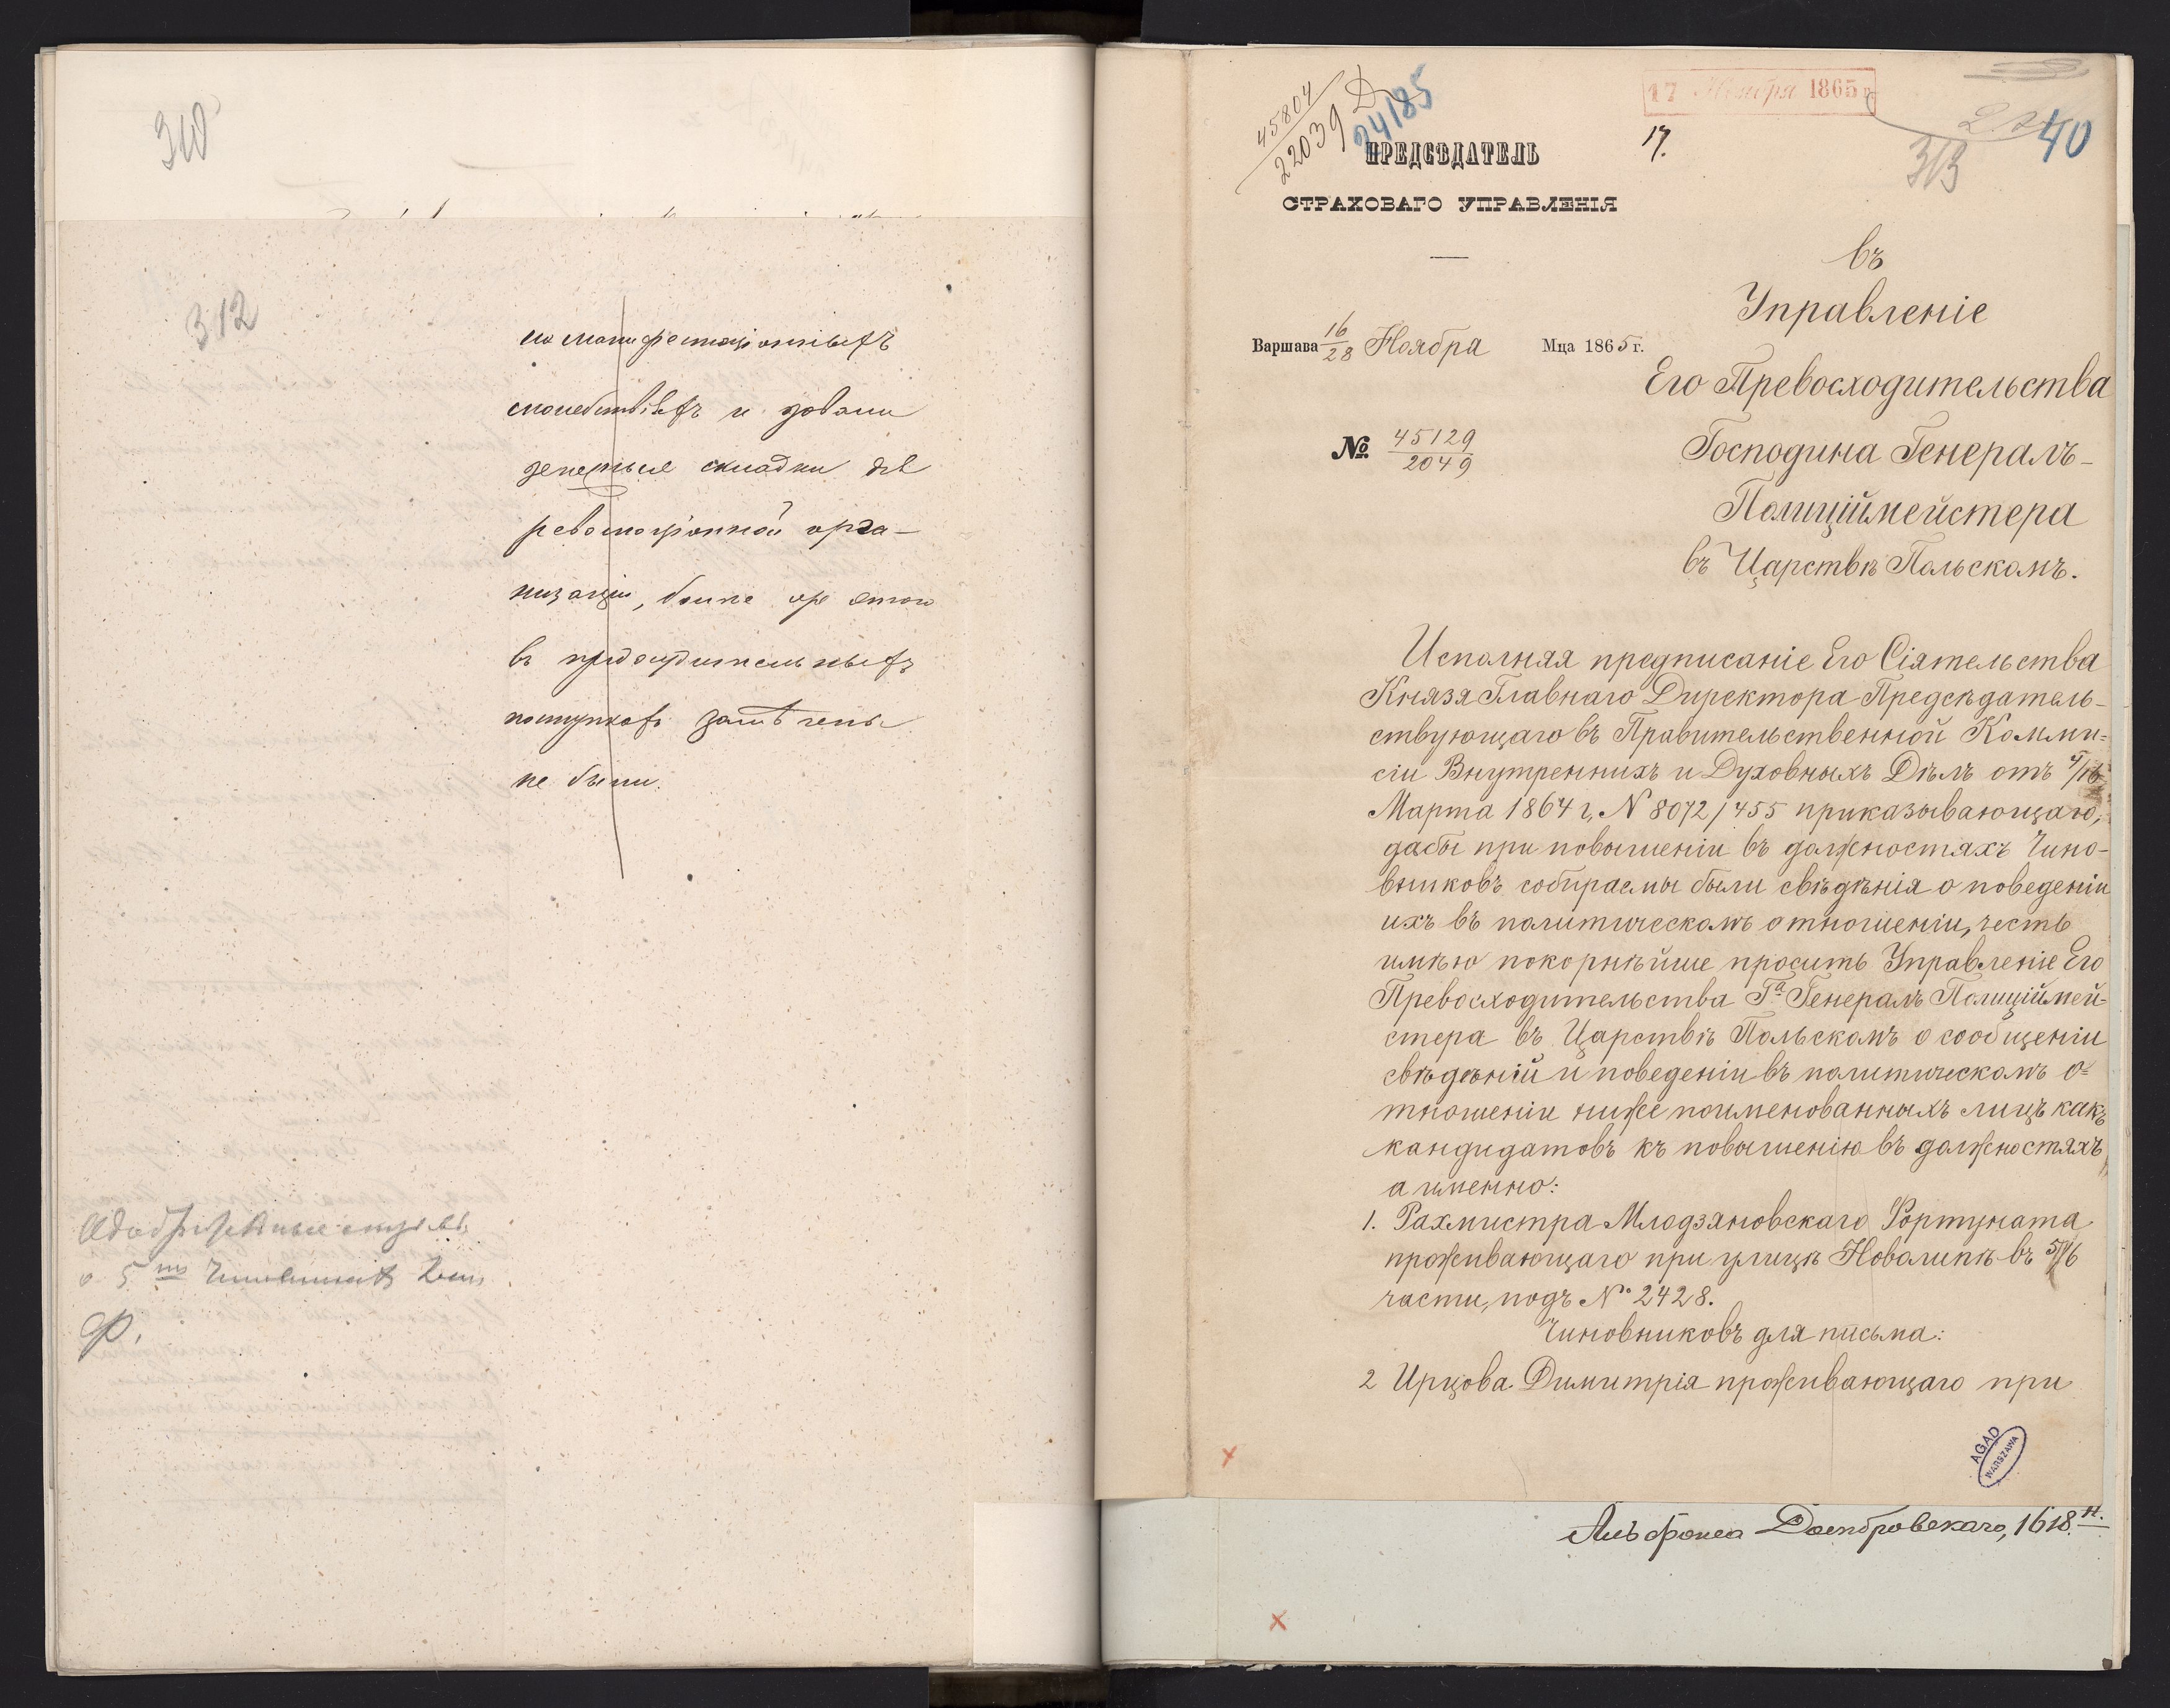 310
312
на манифестаціонныхъ
молебствіяхъ и давали
денежные складки для
революціонной орга-
низаціи, болѣе же этого
въ предосудительныхъ
поступкахъ замѣчены
не были.
о 5ти Чиновникахъ
Ф.
45804
22039 Д
24185
17 Ноября 1865 г.
17.
313
40
ПРЕДСѢДАТЕЛЬ
СТРАХОВАГО УПРАВЛЕНІЯ
Въ
Управленіе
Варшава 16/28 Ноября Мца 1865 г.
Его Превосходительства
№ 45129/2049
Господина Генералъ-
Полиціймейстера
въ Царствѣ Польскомъ.
Исполняя предписаніе Его Сіятельства
Князя Главнаго Директора Предсѣдатель-
ствующаго въ Правительственной Комми-
сіи Внутреннихъ и Духовныхъ Дѣлъ отъ
Марта 1864 г. N 8072/455 приказывающаго,
дабы при повышеніи въ должностяхъ Чино-
вниковъ собираемы были свѣдѣнія о поведеніи
ихъ въ политическомъ отношеніи, честь
имѣю покорнѣйше просить Управленіе Его
Превосходительства Га Генералъ Полиціймей-
стера въ Царствѣ Польскомъ о сообщеніи
свѣдѣній и поведеніи въ политическомъ о-
тношеніи ниже поименованныхъ лицъ какъ
кандидатовъ къ повышенію въ должностяхъ
а именно:
1. Рахмистра Млодзяновскаго Фортуната
проживающаго при улицѣ Новалипкѣ въ 5/6
части, подъ No 2428.
Чиновниковъ для письма:
2 Ирцова Димитрія проживающаго при
AGAD
WARSZAWA
Альфонса Домбровскаго, 1618.н.